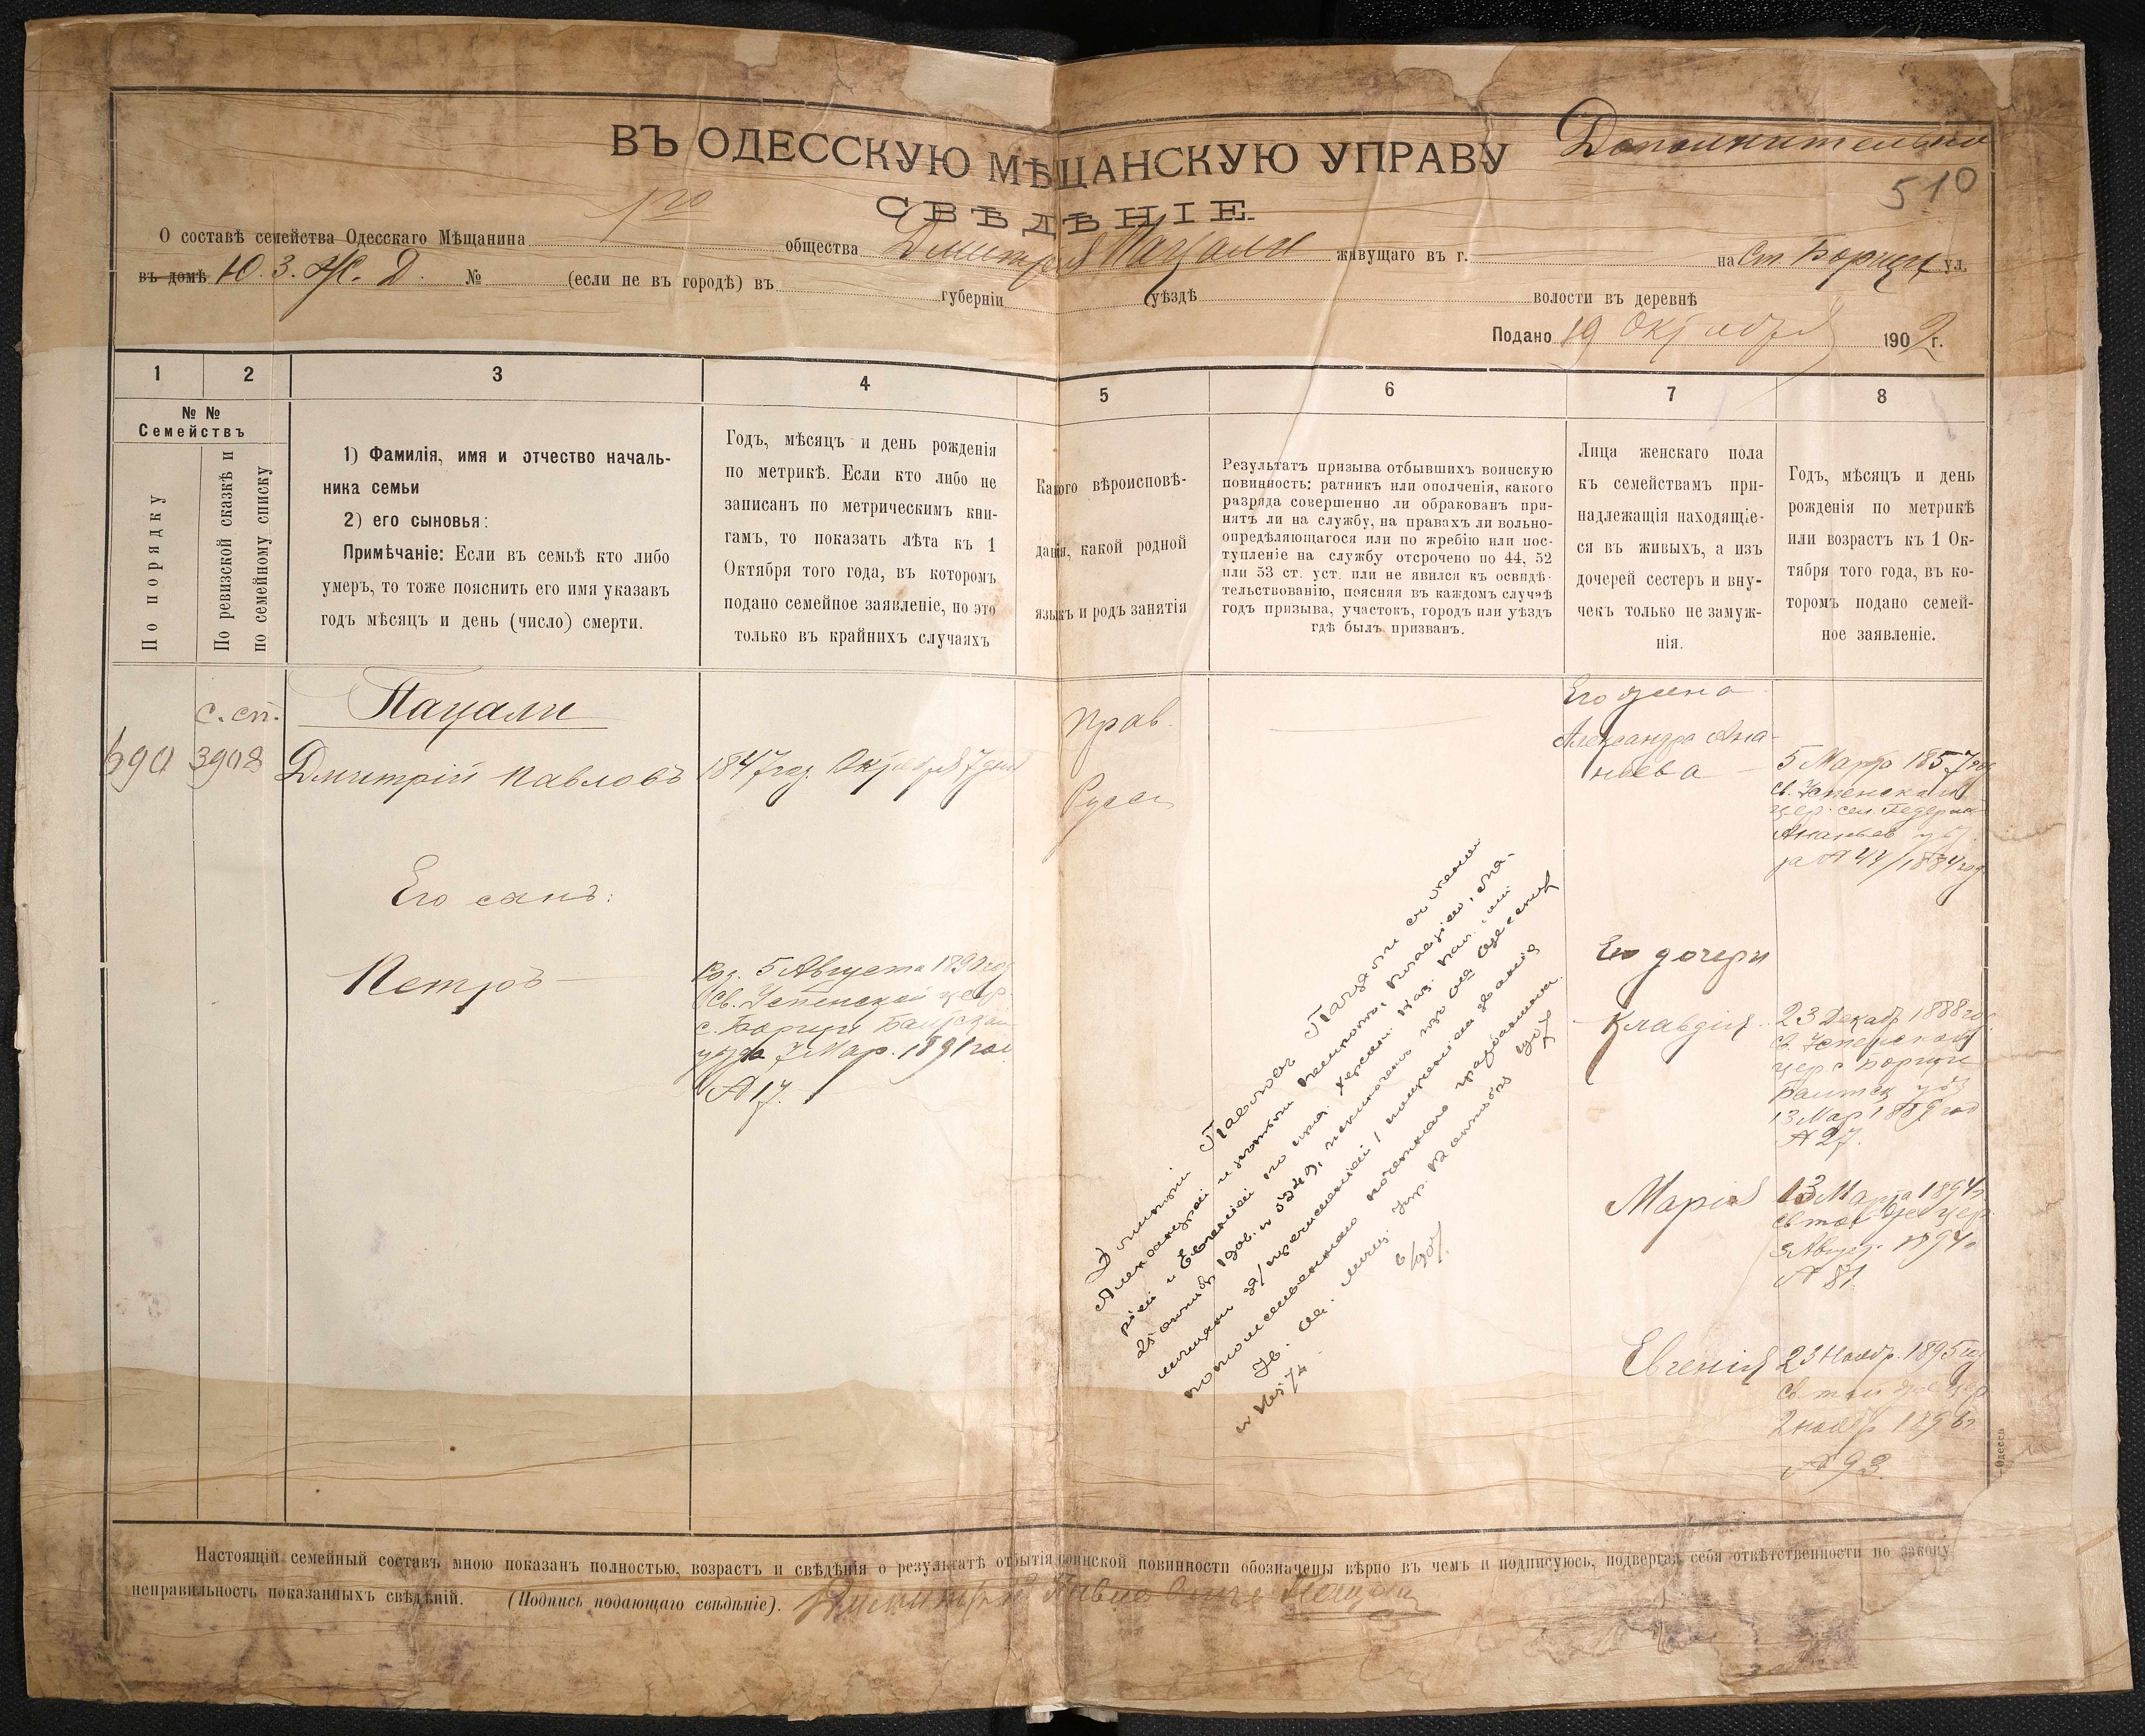 Дополнительно
510
ВЪ ОДЕССКУЮ МѢЩАНСКУЮ УПРАВУ
СВѢДѢНІЕ
О составѣ семейства Одесскаго Мѣщанина 1го общества Дмитрія Пацали живущаго въ г. на Ст. Борщи ул.
въ домѣ Ю. З. Ж. Д. № (если не въ городѣ) въ губерніи уѣздѣ волости въ деревнѣ
Подано 19 Октября 1902 г.
1
2
3
4
5
6
7
8
№ №
Семействъ
По порядку
По ревизской сказкѣ и
по семейному списку
1) Фамилія, имя и отчество началь-
ника семьи
2) его сыновья:
Примѣчаніе: Если въ семьѣ кто либо
умеръ, то тоже пояснить его имя указавъ
годъ мѣсяцъ и день (число) смерти.
Годъ, мѣсяцъ и день рожденія
по метрикѣ. Если кто либо не
записанъ по метрическимъ кни-
гамъ, то показать лѣта къ 1
Октября того года, въ которомъ
подано семейное заявленіе, но это
только въ крайнихъ случаяхъ
Какого вѣроисповѣ-
данія, какой родной
языкъ и родъ занятія
Результатъ призыва отбывшихъ воинскую
повинность: ратникъ или ополченія, какого
разряда совершенно ли обракованъ при-
нятъ ли на службу, на правахъ ли вольно-
опредѣляющагося или по жребію или пос-
тупленіе на службу отсрочено по 44, 52
или 53 ст. уст. или не явился къ освидѣ-
тельствованію, поясняя въ каждомъ случаѣ
годъ призыва, участокъ, городъ или уѣздъ
гдѣ былъ призванъ.
Лица женскаго пола
къ семействамъ при-
надлежащія находящіе-
ся въ живыхъ, а изъ
дочерей сестеръ и вну-
чекъ только не замуж-
нія.
Годъ, мѣсяцъ и день
рожденія по метрикѣ
или возрастъ къ 1 Ок-
тября того года, въ ко-
торомъ подано семей-
ное заявленіе.
690
с. сп.
3908
Пацали
Дмитрій Павловъ
1847 год. Октября 7 дня
Прав.
Русск
Его жена
Александра Ана-
ньева
5 Марта 1857 го
св. Успенской
цер. сел.
Ананьев. уѣз.
за № 44/1884 год
Его сынъ:
Петръ
Рож. 5 Августа 1890 год
Св. Успенской цер.
с. Борщи Балтскаго
уѣзда 7 Мар. 1891 год
№ 17.
Его дочери
Клавдія
23 Декаб. 1888 го
св. Успенской
цер с Борщи
Балтск уѣз
13 Мар 1889 год
№ 27.
Марія
13 Марта 1894 г
св той же цер
3 Авгус. 1894 г
№ 81.
Евгенія
23 Нояб. 1895 год
св той же цер
2 нояб 1896 г
№ 93.
Димитрій Павловъ Пацали съ женою
Александрой и дѣтьми Петромъ, Клавдіею, Ма-
ріей и Евгеніей по указ. Херсон. Каз. Пал. отъ
1906. № 5249, исключенъ изъ Одесскихъ
мѣщанъ за перечисленіемъ
потомственнаго почетнаго гражданина.
Настоящій семейный составъ мною показанъ полностью, возрастъ и свѣдѣнія о результатѣ отбытія воинской повинности обозначены вѣрно въ чемъ и подписуюсь, подвергая себя отвѣтственности по закону
неправильность показанныхъ свѣдѣній. (Подпись подающаго свѣдѣніе). Димитрій Павловичъ Пацали
Одесса